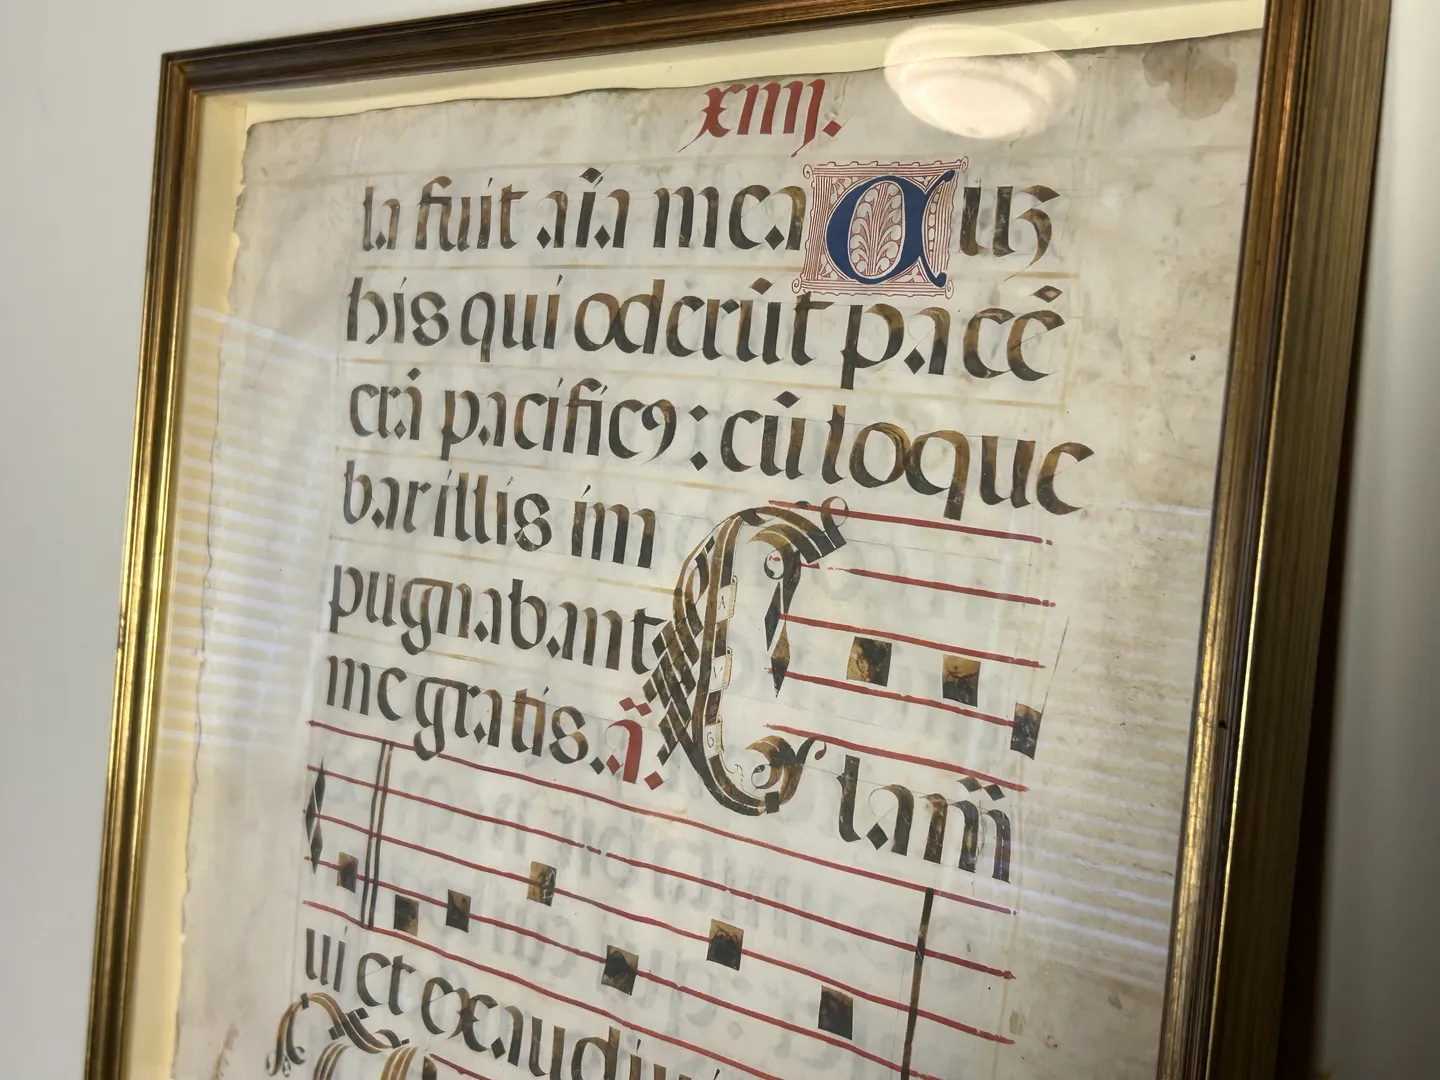 xiiij.
la fuit aīa mea Cuʒ
his qui oderūt pacē
erā pacific9: cū loque
bar illis im
pugnabant
me gratis. ā.
Clam̄
A
V
G
ui et exaudi